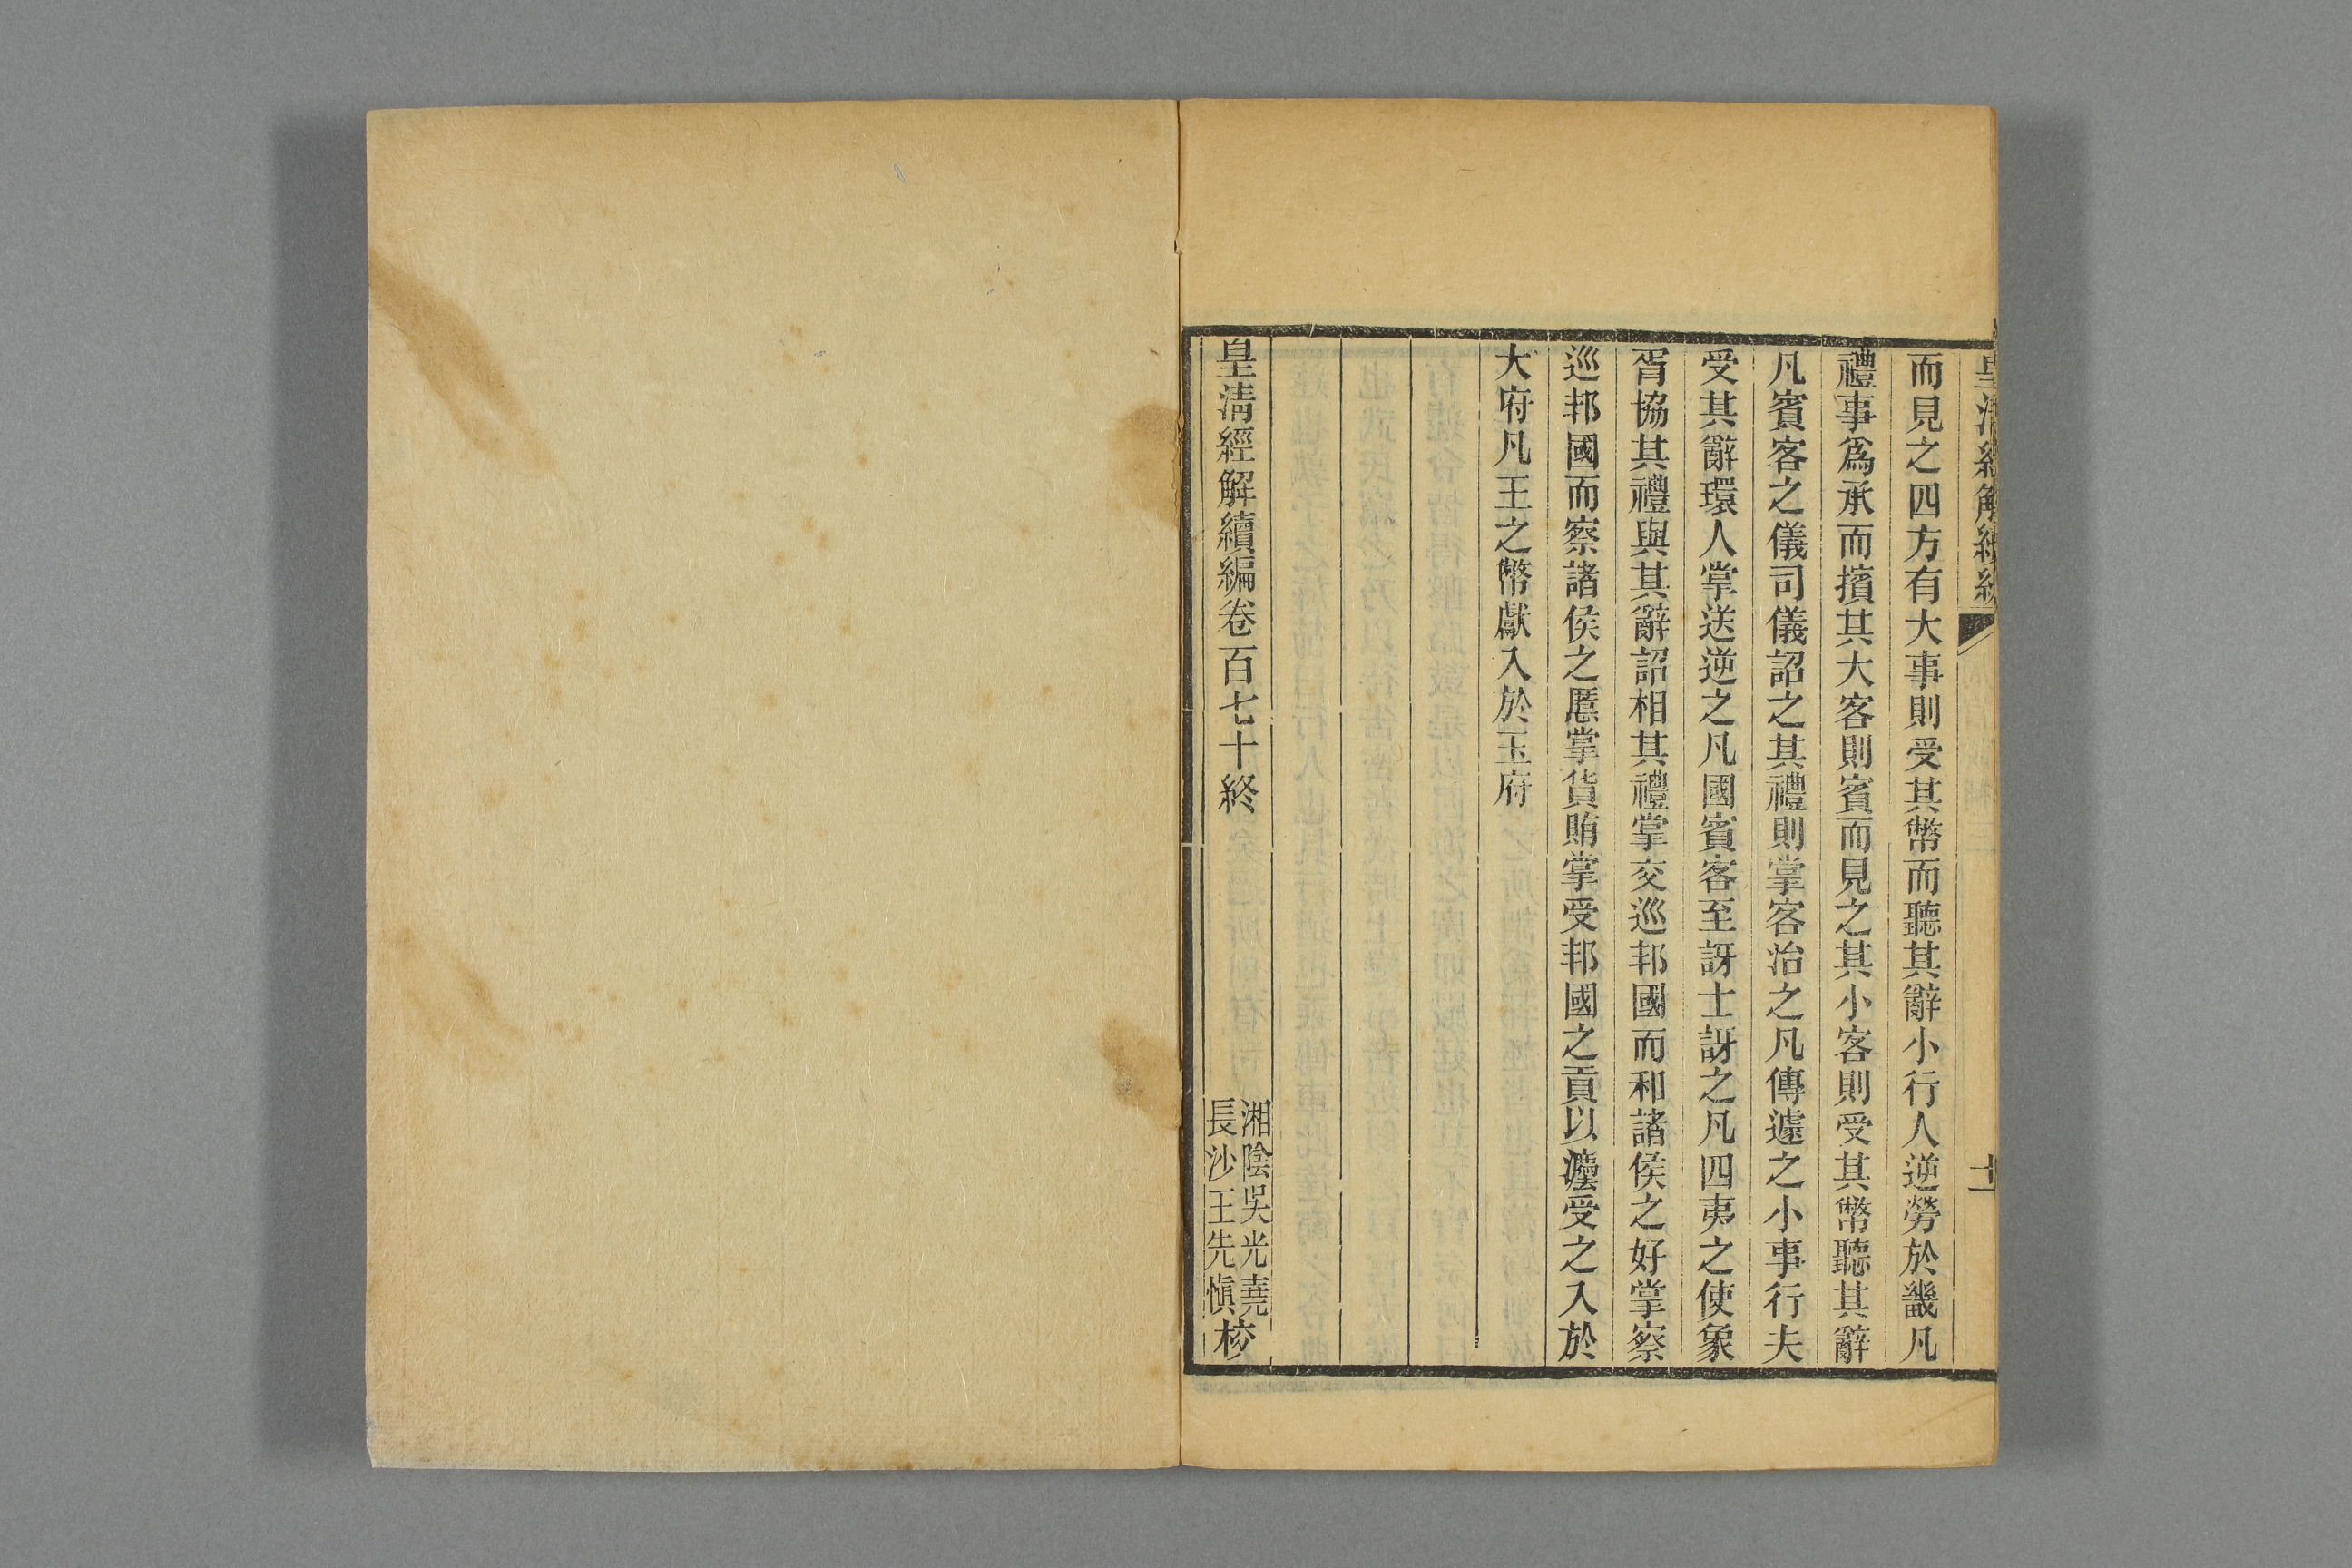 皇清經解續編
十
而見之四方有大事則受其幣而聽其辭小行人逆勞於畿凡
禮事爲承而擯其大客則賓而見之其小客則受其幣聽其辭
凡賓客之儀司儀詔之其禮則掌客治之凡傳遽之小事行夫
受其辭環人掌送逆之凡國賓客至訝士訝之凡四夷之使象
胥協其禮與其辭詔相其禮掌交巡邦國而和諸侯之好掌察
巡邦國而察諸侯之慝掌貨賄掌受邦國之貢以灋受之入於
大府凡王之幣獻入於玉府
皇清經解續編卷百七十終
湘陰吳光堯
長沙王先愼
校